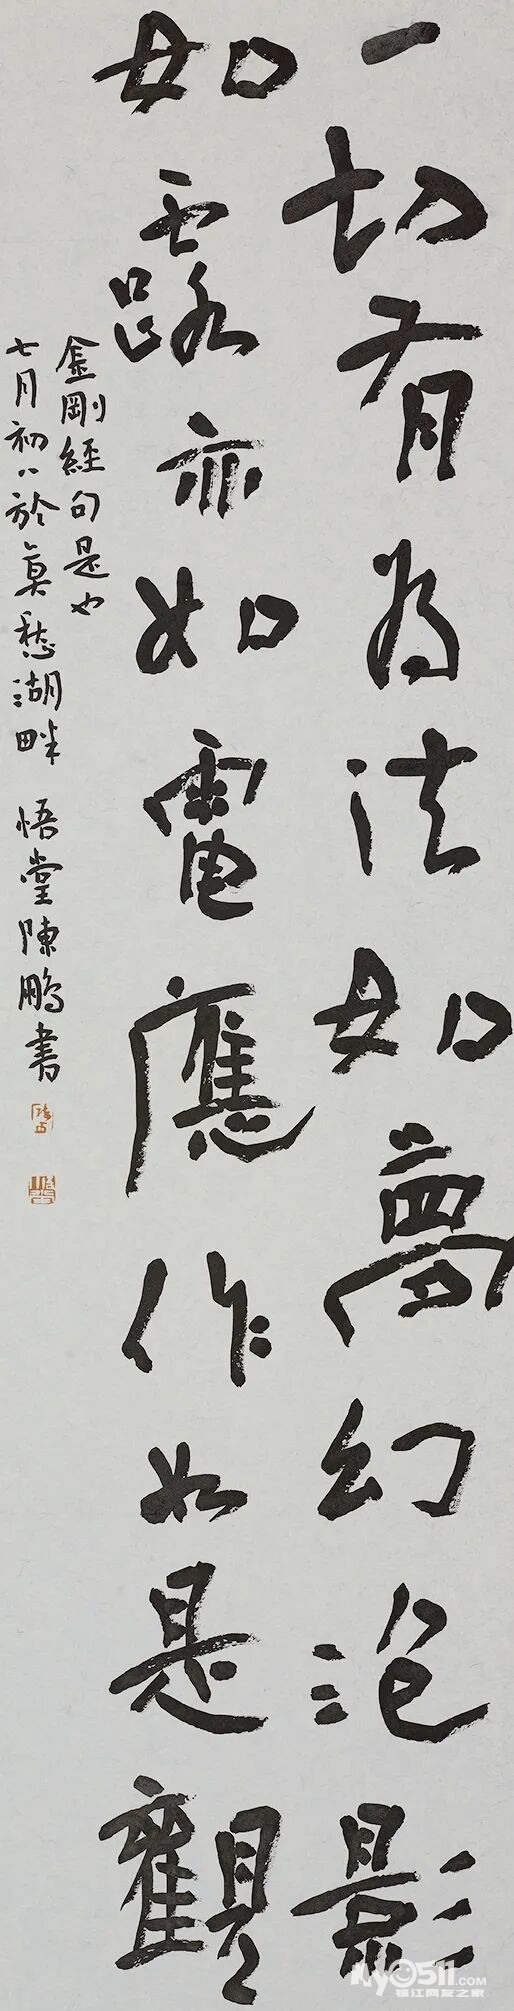 一切有為法如夢幻泡影
如露亦如電應作如是觀
金剛經句是也
七月初八於莫愁湖畔 悟堂陳鵬書
MY0511.com
镇江网友之家